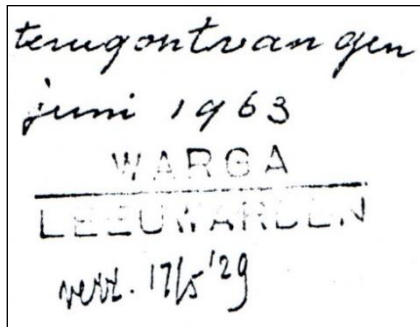 terugontvangen
juni 1963
WARGA
LEEUWARDEN
verz. 17/5 '29